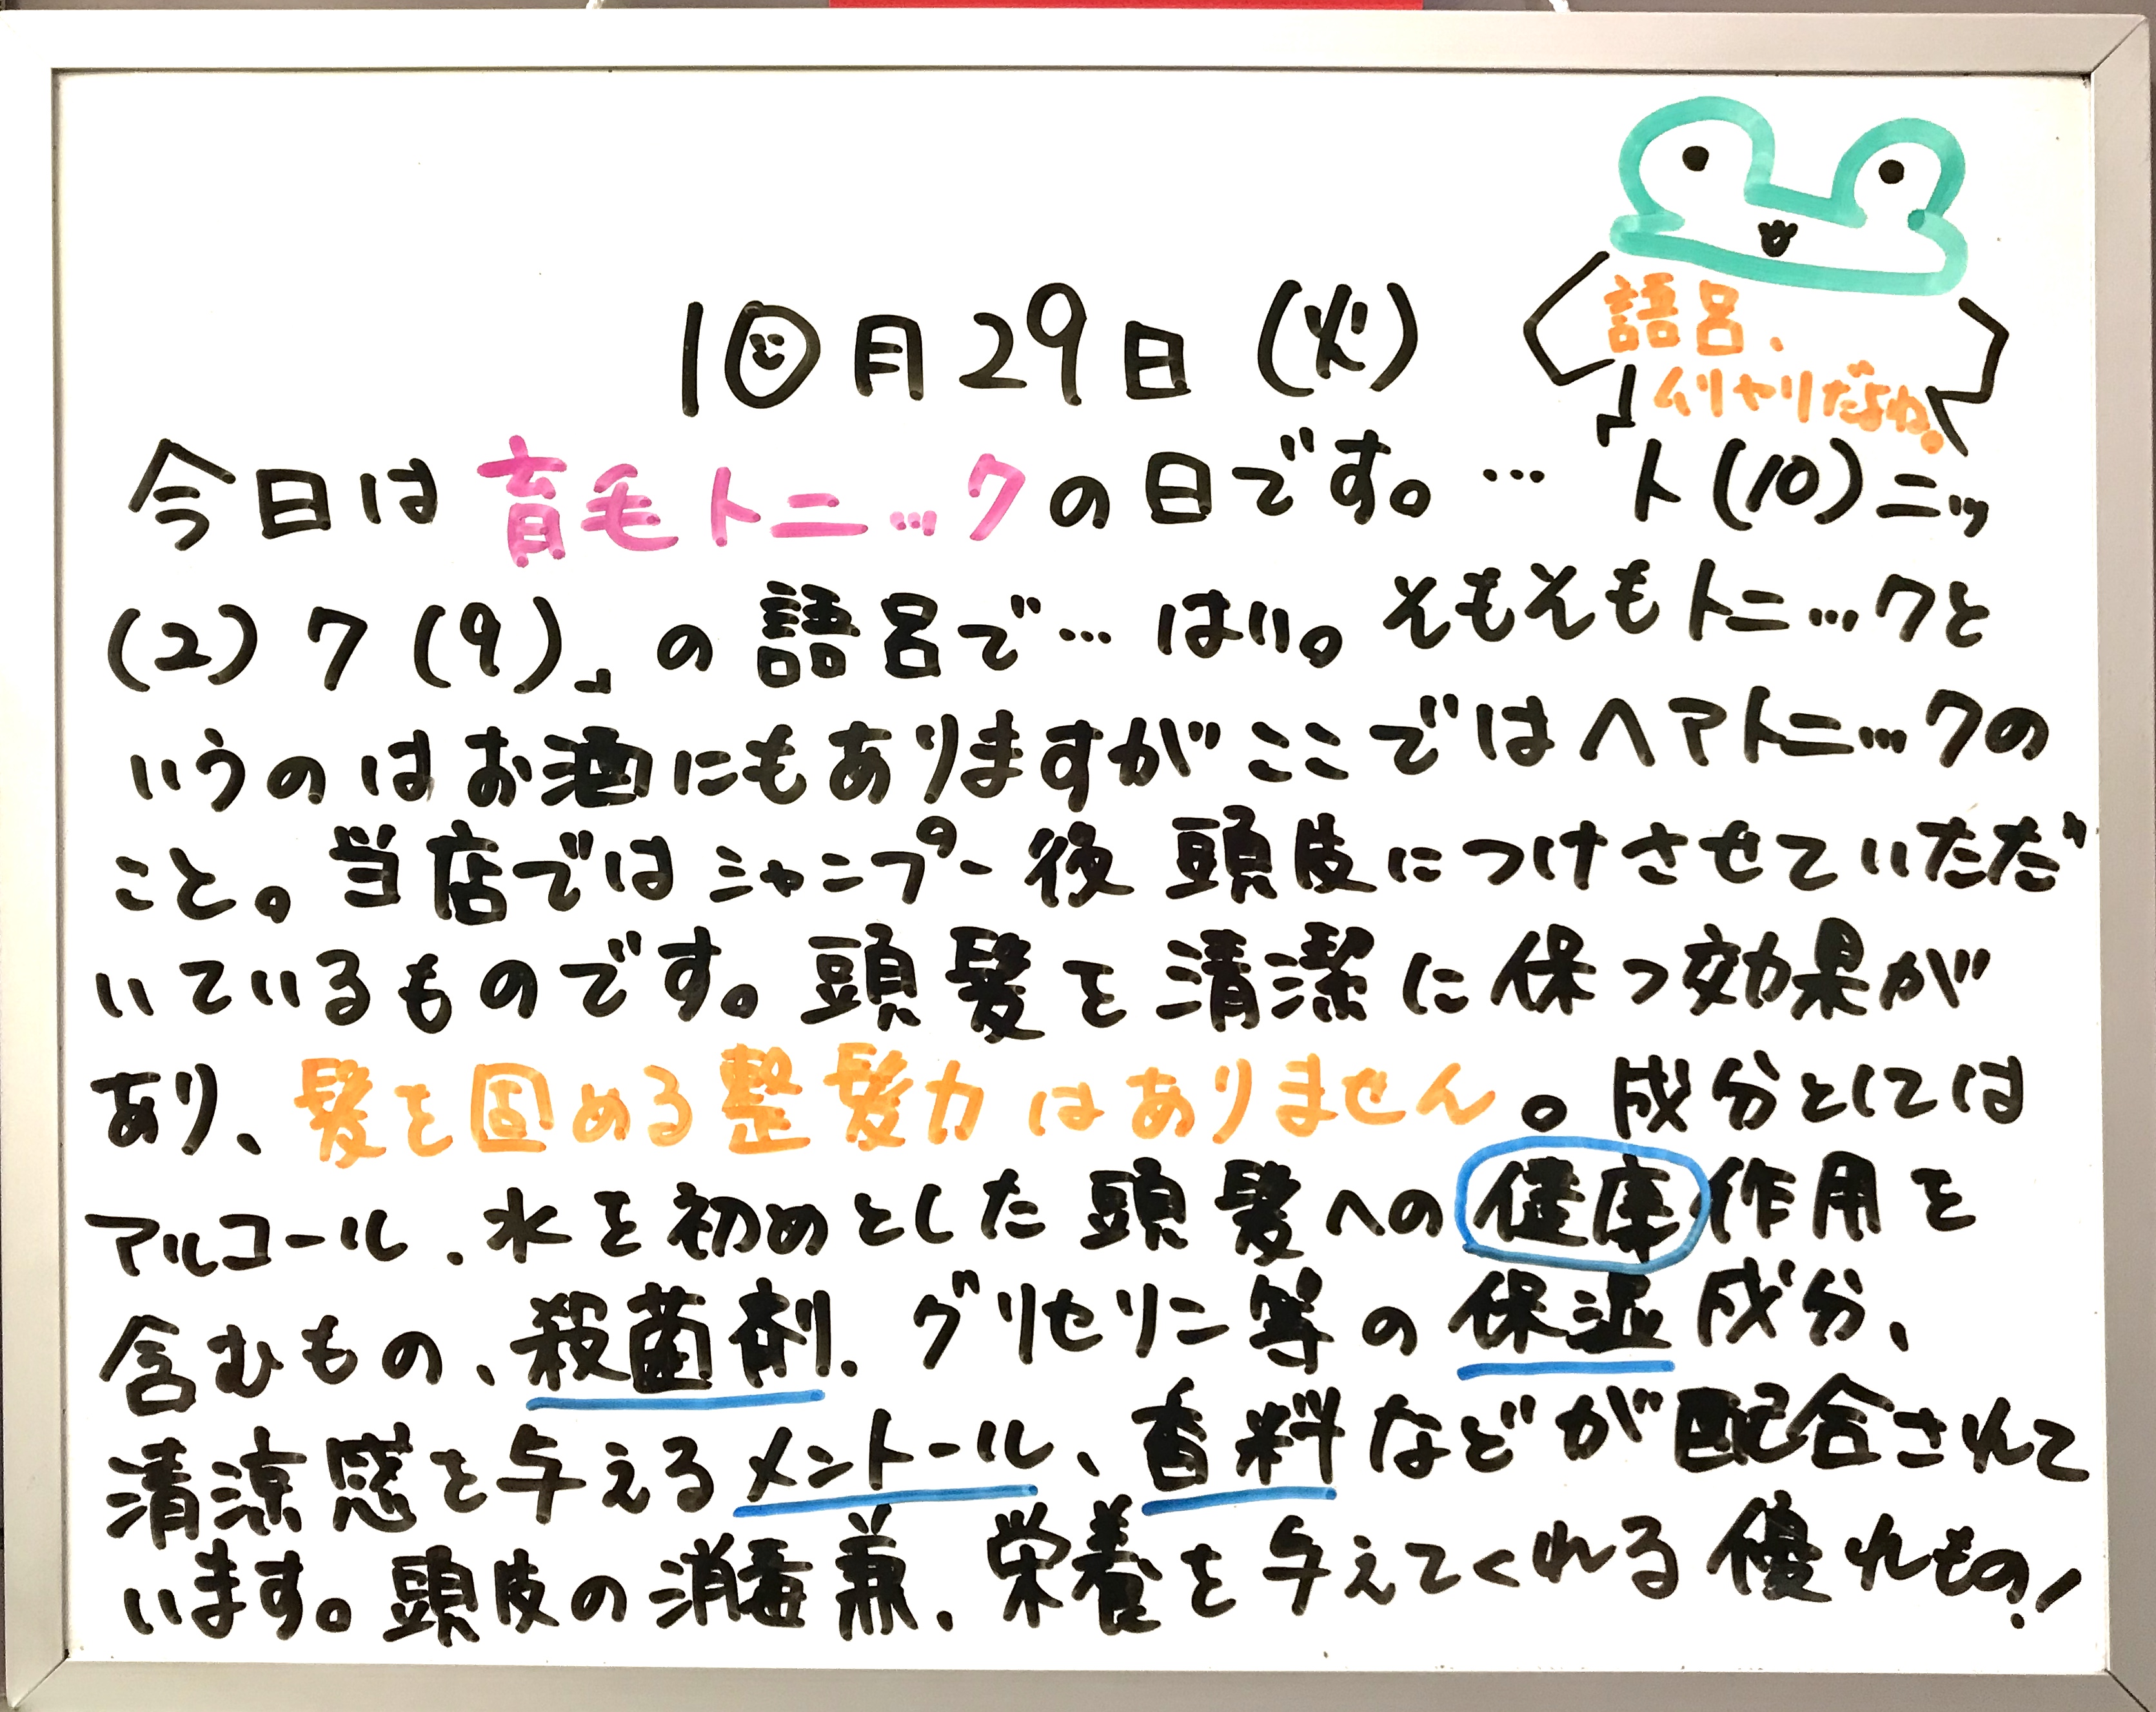 10月29日(火)
語呂、
ムリヤリだよね。
今日は育毛トニックの日です。…「ト(10)ニッ
(2)ク(9)」の語呂で…はい。そもそもトニックと
いうのはお酒にもありますがここではヘアトニックの
こと。当店ではシャンプー後頭皮につけさせていただ
いているものです。頭髪を清潔に保つ効果が
あり、髪を固める整髪力はありません。成分としては
アルコール、水を初めとした頭髪への健康作用を
含むもの、殺菌剤、グリセリン等の保湿成分、
清涼感を与えるメントール、香料などが配合されて
います。頭皮の消毒兼、栄養を与えてくれる優れもの!